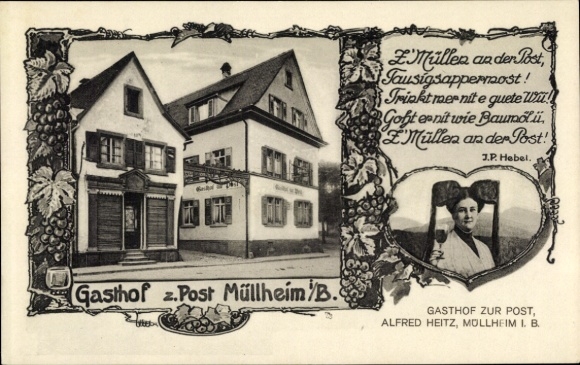 Z'Müllen an der Post,
Tausigsappermost!
Trinkt mer nit e guete Wii!
Goht er nit wie Baumölii,
Z'Müllen an der Post!
J.P. Hebel.
Gasthof zur Post
Gasthof zur Post
Gasthof z. Post Müllheim i/B.
GASTHOF ZUR POST,
ALFRED HEITZ, MÜLLHEIM I. B.